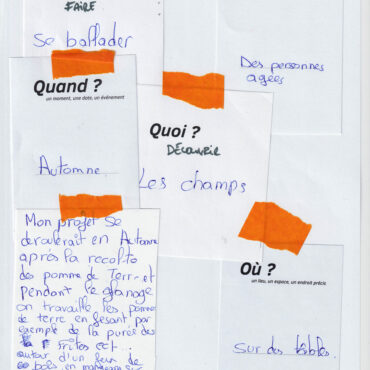 FAIRE
Se ballader
Des personnes
agees
Quand ?
un moment, une date, un événement
Automne
Quoi ?
DÉCOUVRIR
Les champs
Mon projet se
deroulerait en Automne
après la recolte
des pomme de Terr- et
pendant le glanage
on travaille les pomme
de terre en fesant par
exemple de la purée des
frites ect...
autour d'un feux de
bois en
Où ?
un lieu, un espace, un endroit précis
sur des tables